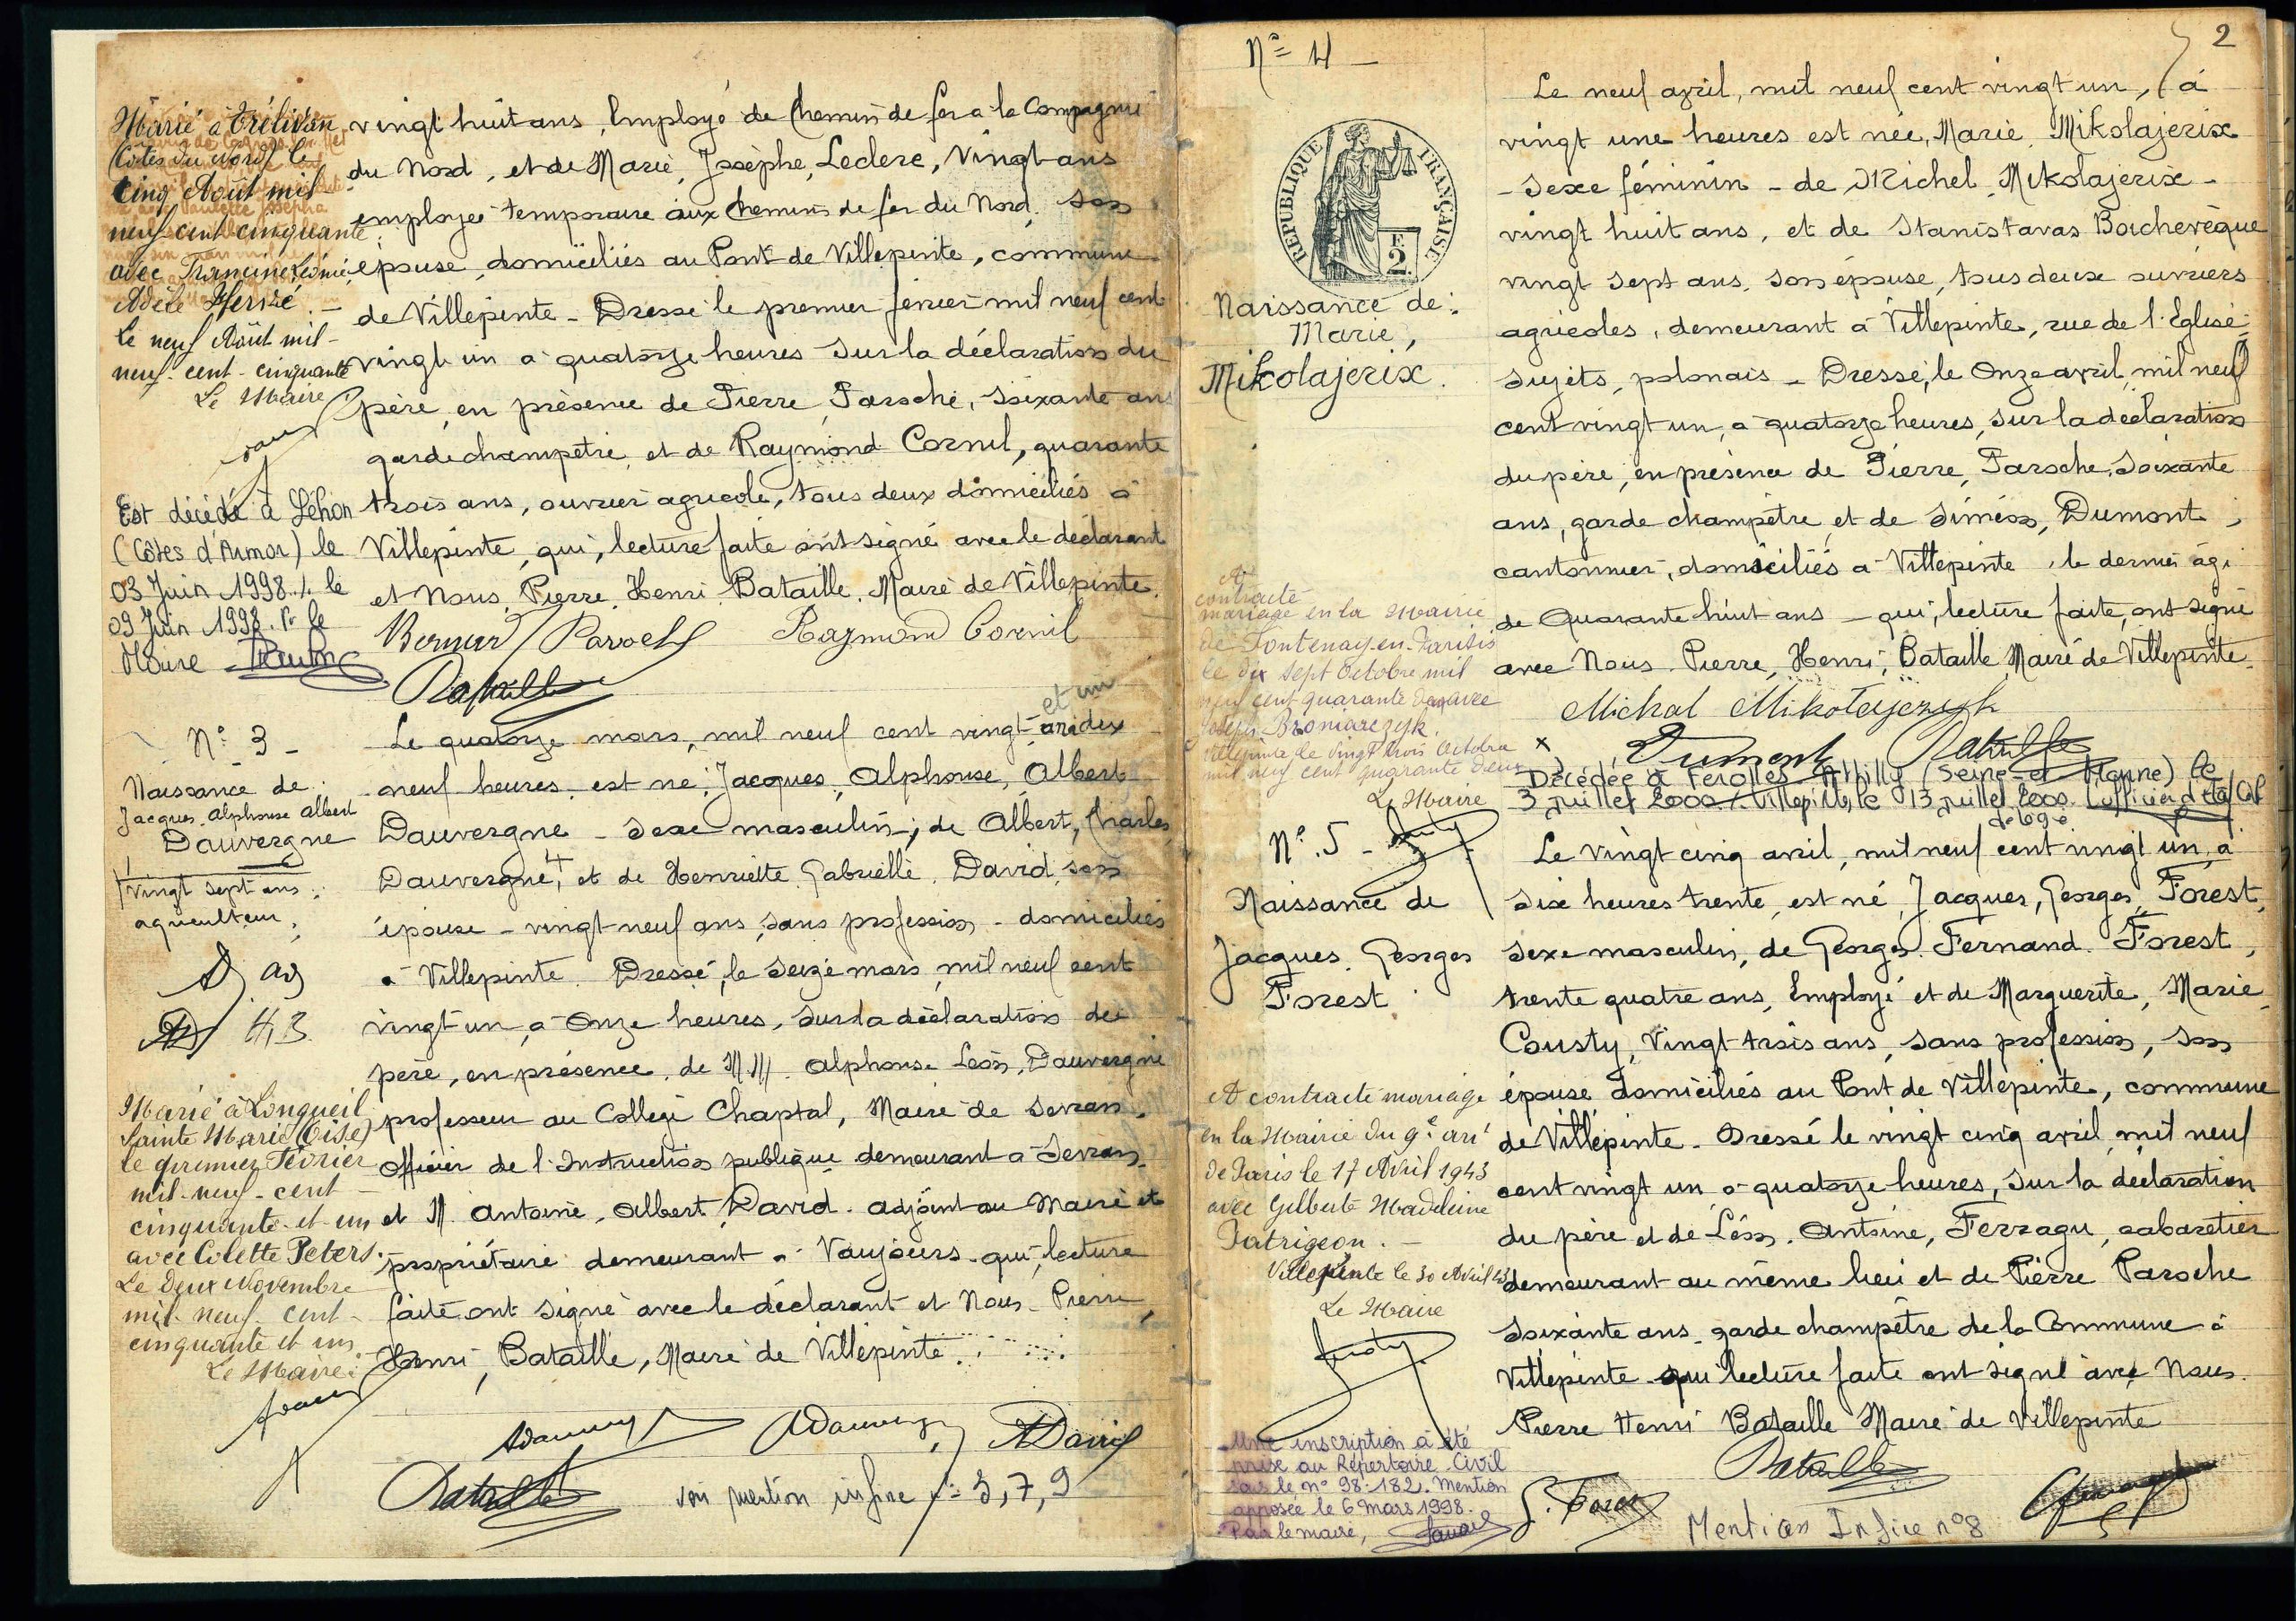 Marié à Trélivan
(Côtes du Nord) le
cinq Août mil
neuf cent cinquante
avec Francine Léonie
Adèle Hervé. -
Le neuf Août mil-
neuf-cent-cinquante
Le Maire
Est décédé à Léhon
(Côtes d'Armor) le
03 Juin 1998./. le
09 Juin 1998. Pr le
Maire
vingt huit ans, Employé de Chemin de fer à la Compagnie
du Nord, et de Marie, Josèphe, Leclerc, Vingt ans
employée temporaire aux chemins de fer du Nord. Son
épouse, domiciliés au Pont de Villepinte, commune
de Villepinte - Dressé le premier février mil neuf cent
vingt un à quatorze heures sur la déclaration du
père, en présence de Pierre, Paroche, soixante ans
garde champêtre, et de Raymond Cornil, quarante
trois ans, ouvrier agricole, tous deux domiciliés à
Villepinte, qui, lecture faite ont signé avec le déclarant
et Nous, Pierre, Henri, Bataille, Maire de Villepinte.
Paroche Raymond Cornil
Bataille
N° 3 -
Naissance de
Jacques Alphonse Albert
Dauvergne
vingt sept ans
agriculteur,
Marié à Longueil
Sainte Marie (Oise)
le premier Février
mil-neuf-cent-
cinquante-et-un
avec Colette Peters.
Le deux Novembre
mil-neuf-cent-
cinquante et un.
Le Maire:
et un
Le quatorze mars, mil neuf cent vingt à dix
neuf heures, est né, Jacques, Alphonse, Albert
Dauvergne - Sexe masculin; de Albert, Charles
Dauvergne, et de Henriette, Gabrielle, David, son
épouse - vingt-neuf ans, sans profession - domiciliés
à Villepinte. Dressé, le seize mars, mil neuf cent
vingt-un, à Onze heures, sur la déclaration du
père, en présence, de M.M. Alphonse Léon, Dauvergne
professeur au Collège Chaptal, Maire de Sevran,
officier de l'Instruction publique demeurant à Sevran,
et M. Antoine, Albert, David. adjoint au Maire et
propriétaire demeurant à Vaujours - qui, lecture
faite ont signé avec le déclarant et Nous - Pierre,
Henri, Bataille, Maire de Villepinte.
ADauvergne ADauvergne ADavid
Bataille voir mention in fine n° 3, 7, 9
2
N° 4 -
REPUBLIQUE FRANÇAISE
2
Naissance de:
Marie,
Mikolajerix.
A
contracté
mariage en la Mairie
de Fontenay-en-Parisis
le dix sept Octobre mil
neuf cent quarante deux avec
Joseph Broniarczyk.
Villepinte le vingt trois Octobre
mil neuf cent quarante deux
Le Maire
Le neuf avril, mil neuf cent vingt un, à
vingt une heures est née, Marie, Mikolajerix
- Sexe féminin - de Michel, Mikolajerix -
vingt huit ans, et de Stanistavas Borchevèque
vingt sept ans, son épouse, tous deux ouvriers
agricoles, demeurant à Villepinte, rue de l'Eglise,
sujets polonais - Dressé, le Onze avril, mil neuf
cent vingt un, à quatorze heures, sur la déclaration
du père, en présence de Pierre, Paroche, soixante
ans, garde champêtre, et de Siméon, Dumont,
cantonnier, domiciliés à Villepinte, le dernier âgé
de Quarante huit ans - qui, lecture faite, ont signé
avec Nous Pierre, Henri, Bataille, Maire de Villepinte.
Michal Mikołajczyk
Dumont Bataille
Décédée à Férolles-Attilly (Seine-et-Marne) le
3 juillet 2000 /. Villepinte, le 13 juillet 2000. L'officier d'état civil
délégué
N° 5 -
Naissance de
Jacques, Georges
Forest
A contracté mariage
en la Mairie du 9e arrt
de Paris le 17 Avril 1943
avec Gilberte Madeleine
Patrigeon. -
Villepinte le 30 Avril 43
Le Maire
Une inscription a été
prise au Répertoire Civil
sous le n° 98-182. Mention
apposée le 6 Mars 1998.
Pour le maire,
Le vingt cinq avril, mil neuf cent vingt un, à
Six heures trente, est né, Jacques, Georges, Forest,
sexe masculin, de Georges Fernand Forest,
trente quatre ans, Employé et de Marguerite, Marie,
Cousty, Vingt-trois ans, sans profession, son
épouse domiciliés au Pont de Villepinte, commune
de Villepinte - Dressé le vingt cinq avril, mil neuf
cent vingt un à quatorze heures, sur la déclaration
du père et de Léon, Antoine, Ferragu, cabaretier
demeurant au même lieu et de Pierre Paroche
soixante ans, garde champêtre de la Commune à
Villepinte qui lecture faite ont signé avec Nous.
Pierre Henri Bataille Maire de Villepinte
Bataille
G. Forest
Mention In fine n° 8